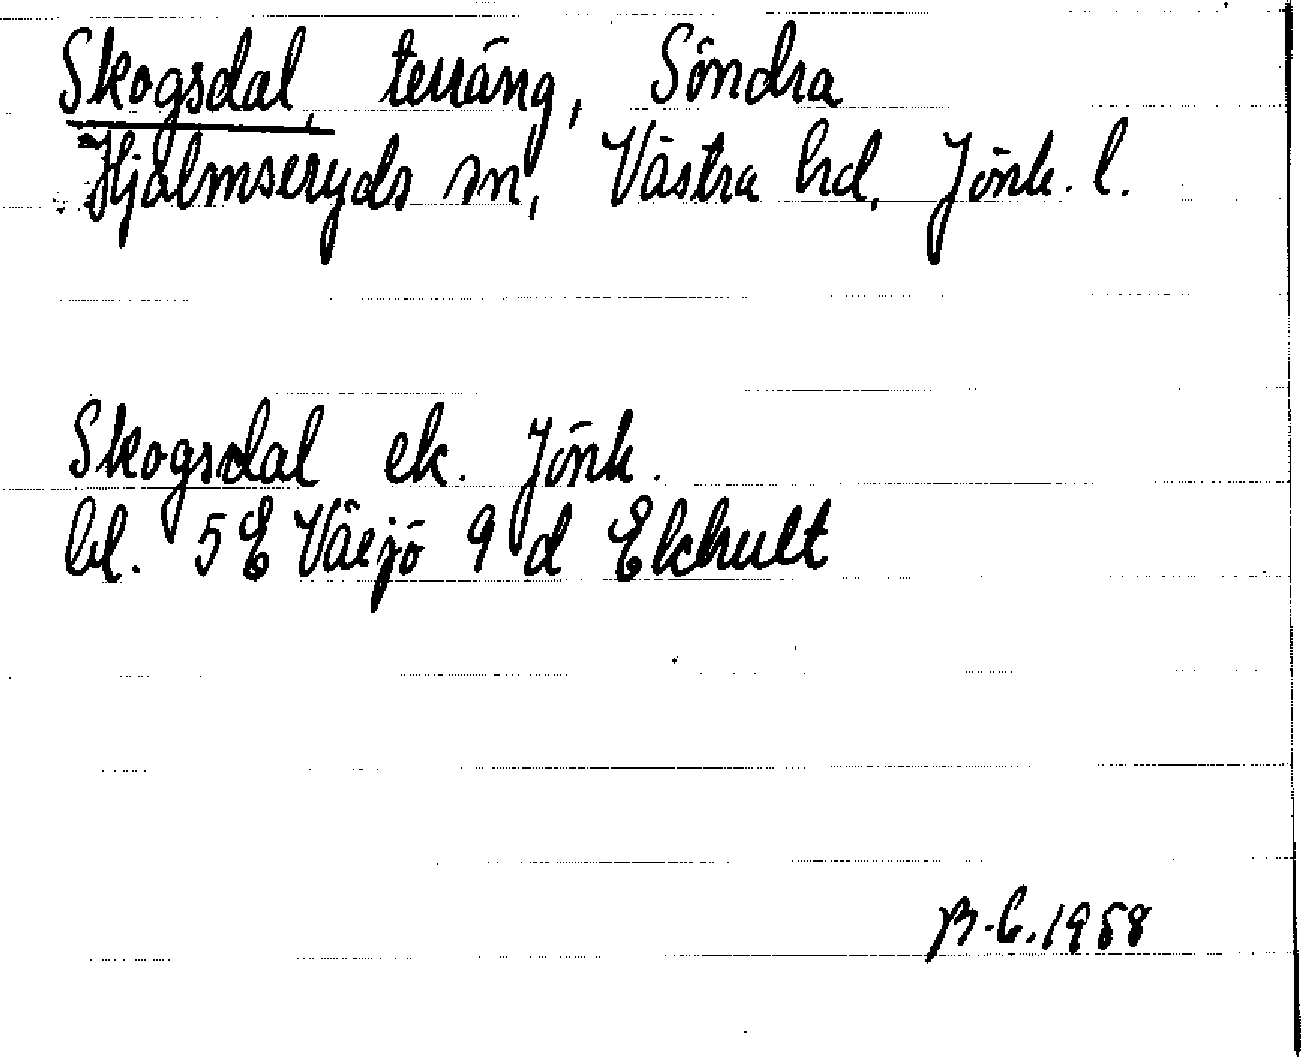 Skogsdal, terräng, Söndra
Hjälmseryds sn, Västra hd, Jönk. l.
Skogsdal ek. Jönk.
bl. 5E Växjö 9 d Ekhult
B.C. 1968